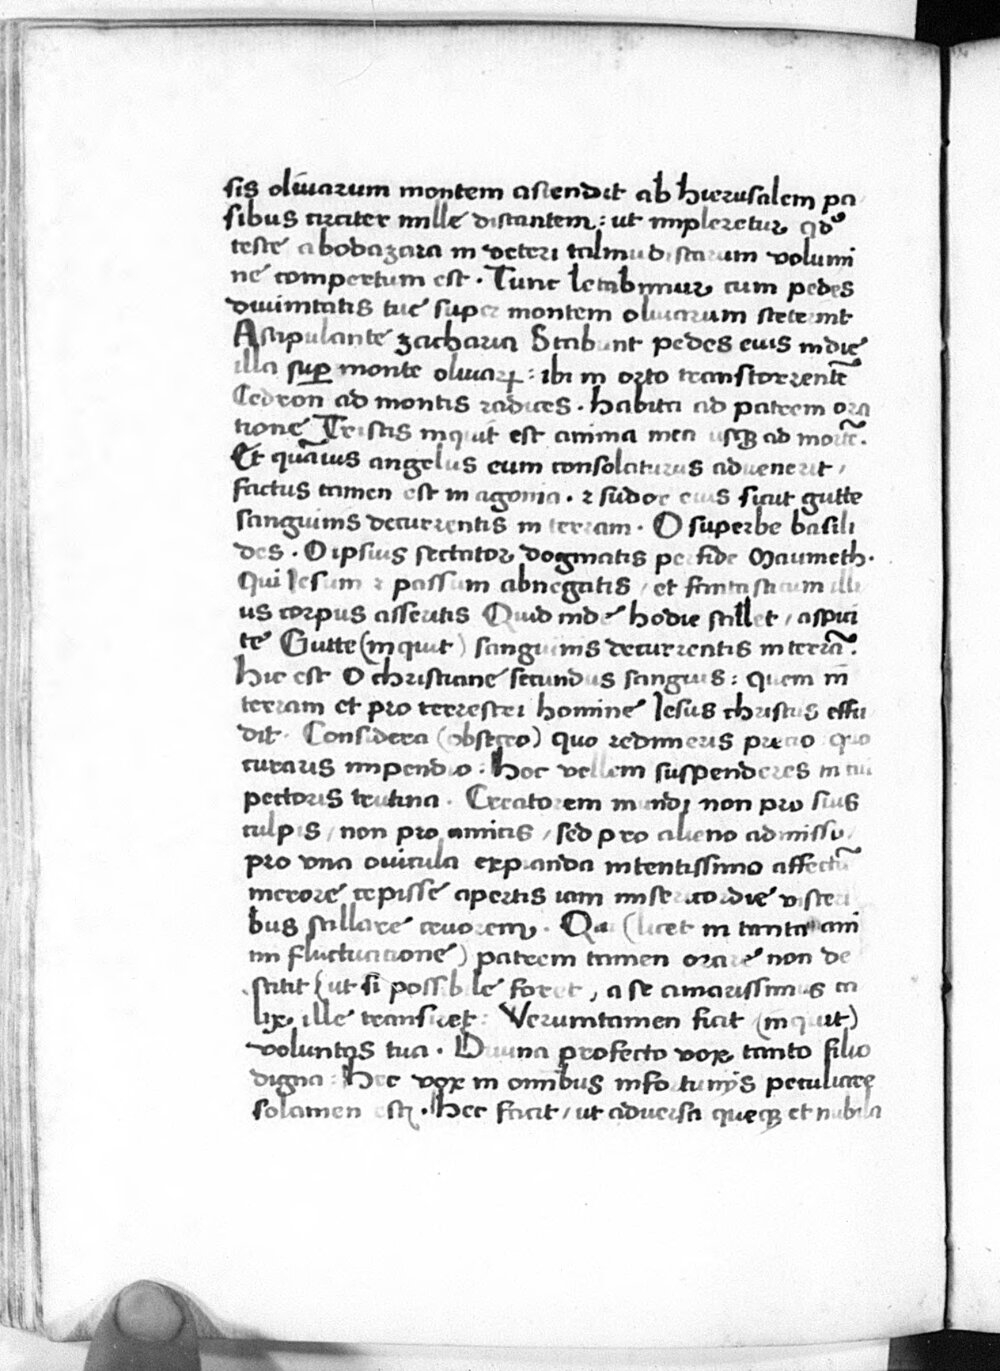 sis oliuarum montem ascendit ab hierusalem pa
sibus circiter mille distantem : ut impleretur qd'
teste abobazara in veteri talmudistarum volumi
ne compertum est . Tunc letabimur cum pedes
diuinitatis tue super montem oliuarum steterint
Astipulante zacharia Stabunt pedes eius in die
illa sup̄ monte oliuaꝝ : ibi in orto trans torrentē
Cedron ad montis radices . habita ad patrem ora
tione Tristis inquit est anima mea usqꝫ ad mortē .
Et quāuis angelus eum consolaturus aduenerit /
factus tamen est in agonia . ⁊ sudor eius sicut gutte
sanguinis decurrentis in terram . O superbe basili
des . O ipsius sectator dogmatis perfide Maumeth .
Qui Iesum ⁊ passum abnegatis / et fantasticum illi
us corpus asseritis Quid inde hodie stillet / aspici
te Gutte (inquit) sanguinis decurrentis in terrā .
hic est O christiane secundus sanguis : quem in
terram et pro terrestri homine Iesus christus effu
dit . Considera (obsecro) quo redimeris precio quo
curaris impendio : hoc vellem suspenderes in tui
pectoris trutina . Creatorem mundi non pro suis
culpis / non pro amicis / sed pro alieno admisso /
pro vna ouicula expianda intentissimo affectu
merore cepisse apertis iam misericordie visceri
bus stillare cruorem . Qui (licet in tanta ani
mi fluctuatione) patrem tamen orare non de
stitit (ut si possibile foret , a se amarissimus ca
lix ille transiret : Verumtamen fiat (inquit)
voluntas tua . Diuina profecto vox tanto filio
digna : Hec vox in omnibus infortunijs peculiare
solamen est . Hec facit / ut aduersa queqꝫ et nubila